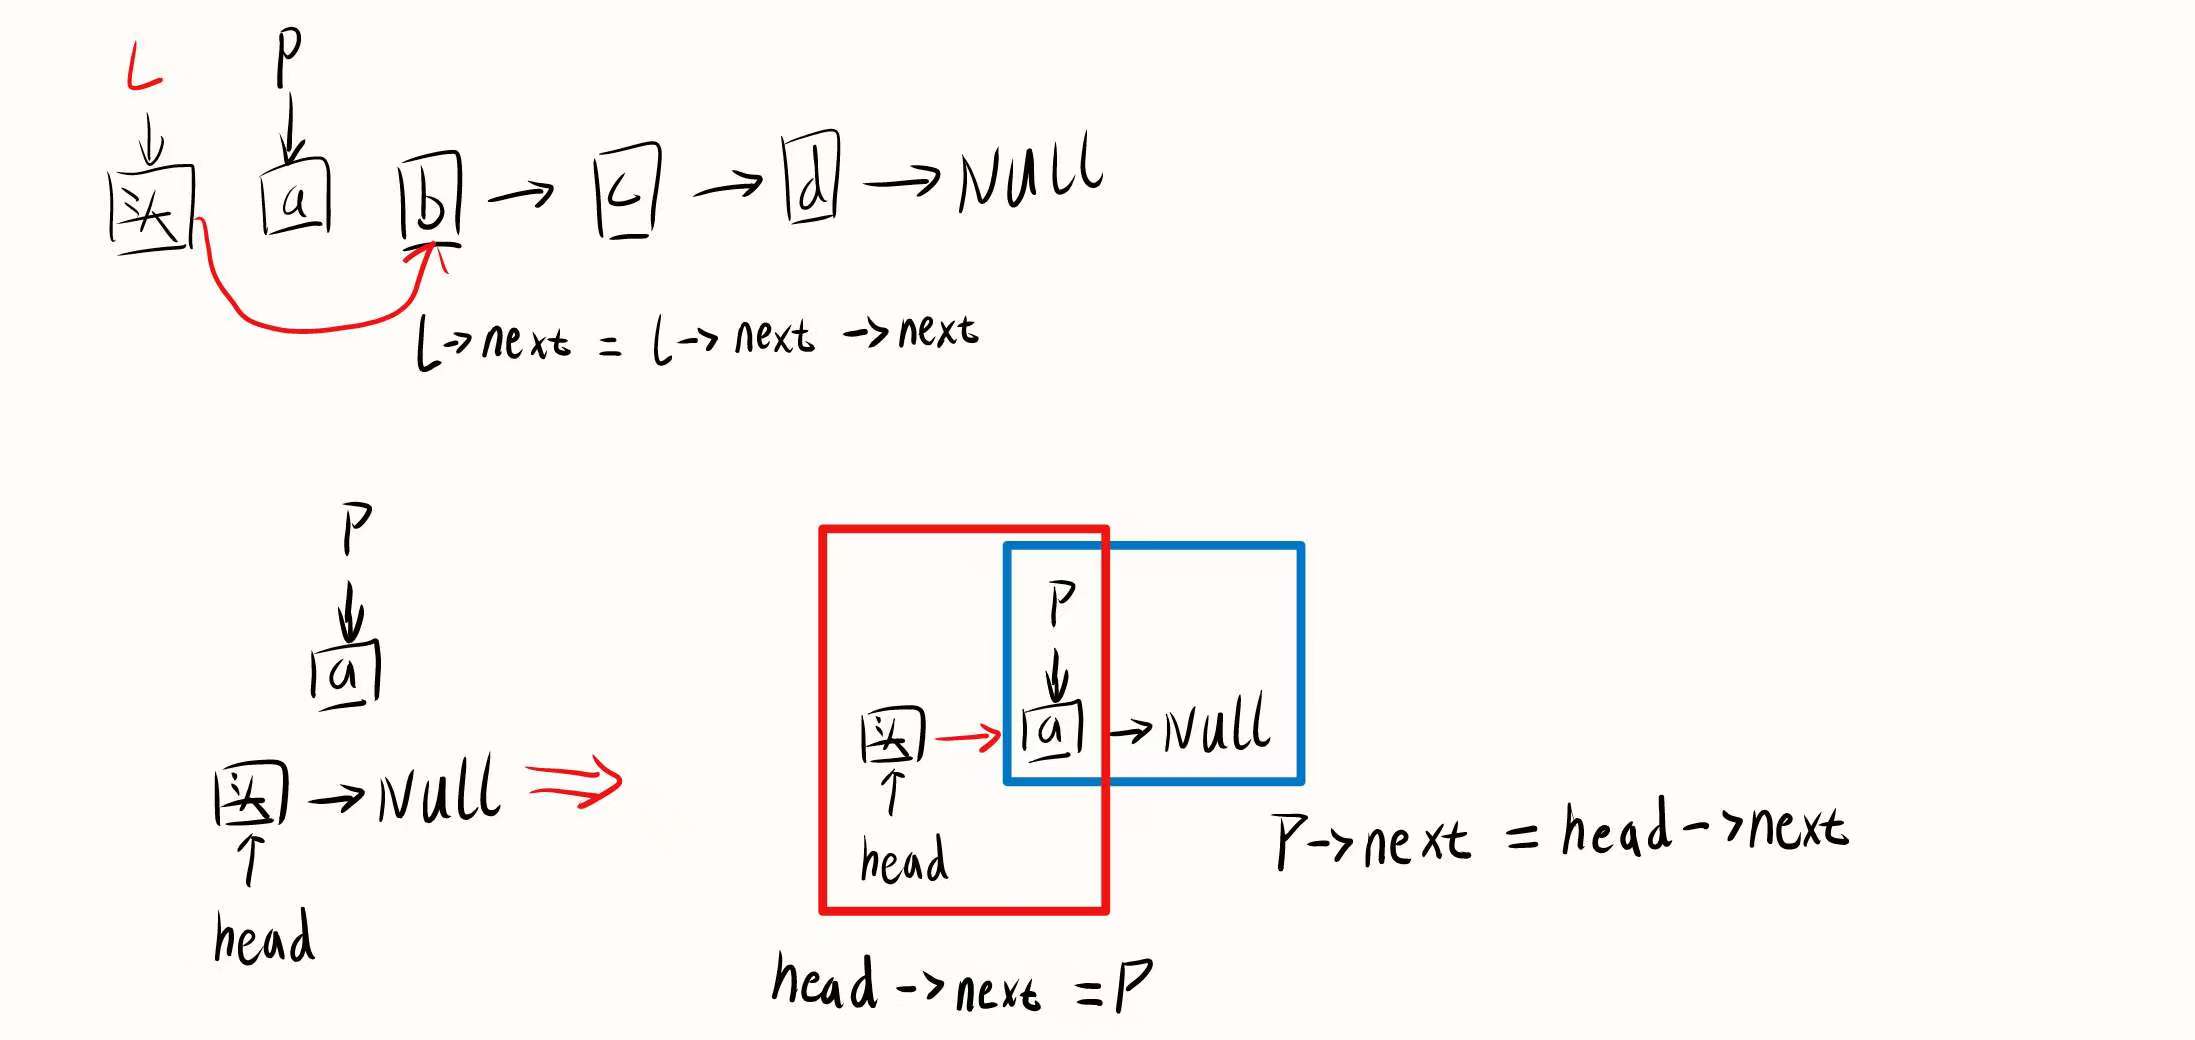 L P
头 a b → c → d → Null
L->next = l->next ->next
P
a
头 → Null
head
P
头 → a → Null
head
P->next = head->next
head->next = P